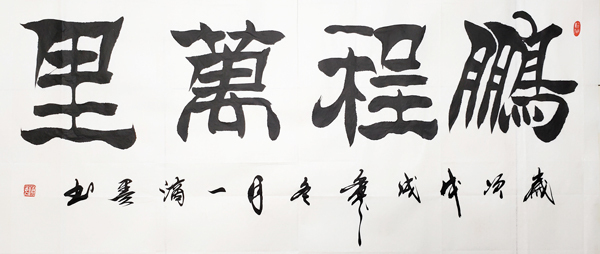 鵬程萬里
歲次戊戌年冬月一滴墨书